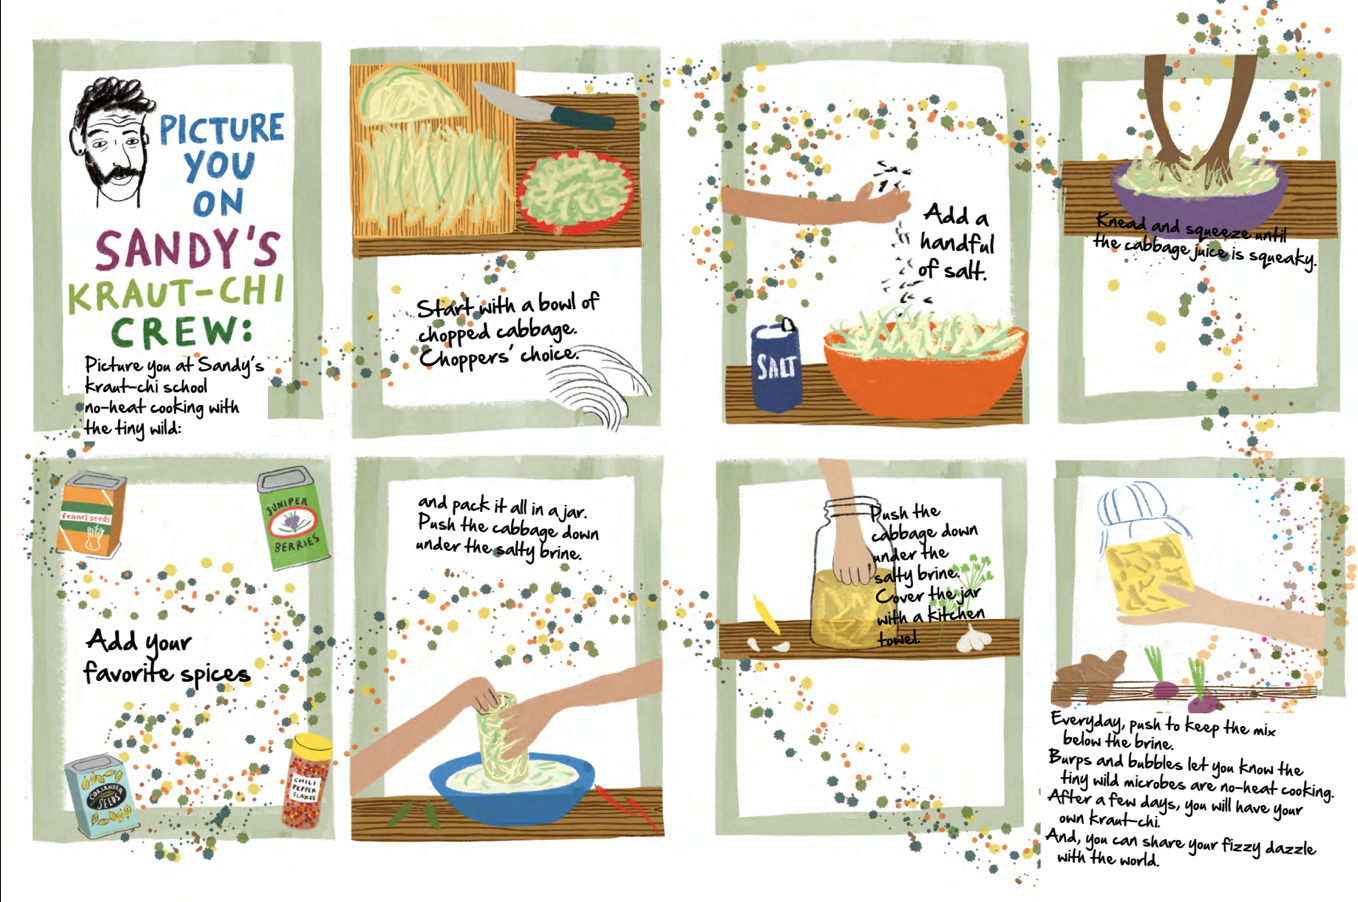 PICTURE
YOU
ON
SANDY'S
KRAUT-CHI
CREW:
Picture you at Sandy's
kraut-chi school
no-heat cooking with
the tiny wild:
Start with a bowl of
chopped cabbage.
Choppers' choice.
Add a
handful
of salt.
SALT
Knead and squeeze until
the cabbage juice is squeaky.
fennel seeds
JUNIPER
BERRIES
Add your
favorite spices
CORIANDER
SEEDS
CHILI
PEPPER
FLAKES
and pack it all in a jar.
Push the cabbage down
under the salty brine.
Push the
cabbage down
under the
salty brine.
Cover the jar
with a kitchen
towel.
Everyday, push to keep the mix
below the brine.
Burps and bubbles let you know the
tiny wild microbes are no-heat cooking.
After a few days, you will have your
own kraut-chi.
And, you can share your fizzy dazzle
with the world.